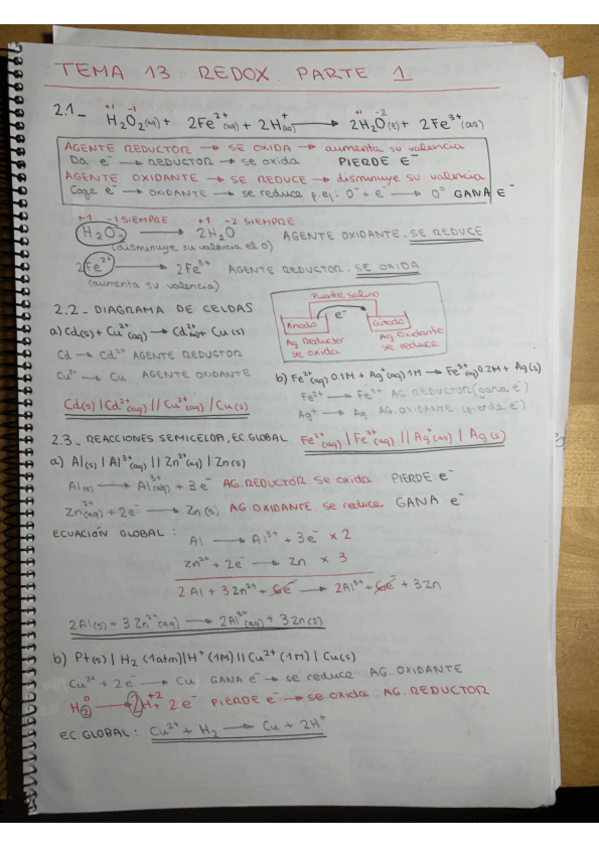 TEMA 13. REDOX PARTE 1
2.1_ H₂O₂(aq) + 2Fe²⁺(aq) + 2H⁺(aq) → 2H₂O(l) + 2Fe³⁺(aq)
+1 -1 +1 -2
AGENTE REDUCTOR → SE OXIDA → aumenta su valencia
Da e⁻ → REDUCTOR → se oxida PIERDE E⁻
AGENTE OXIDANTE → SE REDUCE → disminuye su valencia
Coge e⁻ → OXIDANTE → se reduce p.ej: O⁻ + e⁻ → O⁼ GANA E⁻
+1 -1 SIEMPRE +1 -2 SIEMPRE
H₂O₂ → 2H₂O AGENTE OXIDANTE. SE REDUCE
(disminuye su valencia el O)
2Fe²⁺ → 2Fe³⁺ AGENTE REDUCTOR. SE OXIDA
(aumenta su valencia)
2.2 - DIAGRAMA DE CELDAS
Puente salino
e⁻
Ánodo Cátodo
Ag Reductor se oxida
Ag Oxidante se reduce
a) Cd(s) + Cu²⁺(aq) → Cd²⁺(aq) + Cu(s)
Cd → Cd²⁺ AGENTE REDUCTOR
Cu²⁺ → Cu AGENTE OXIDANTE
Cd(s) | Cd²⁺(aq) || Cu²⁺(aq) / Cu(s)
b) Fe²⁺(aq) 0.1M + Ag⁺(aq) 1M → Fe³⁺(aq) 0.2M + Ag(s)
Fe²⁺ → Fe³⁺ AG REDUCTOR (gana e⁻)
Ag⁺ → Ag AG. OXIDANTE (pierda e⁻)
Fe²⁺(aq) | Fe³⁺(aq) || Ag⁺(aq) | Ag(s)
2.3 - REACCIONES SEMICELDA, EC GLOBAL
a) Al(s) | Al³⁺(aq) || Zn²⁺(aq) | Zn(s)
Al(s) → Al³⁺(aq) + 3e⁻ AG. REDUCTOR se oxida PIERDE e⁻
Zn²⁺(aq) + 2e⁻ → Zn(s) AG OXIDANTE. se reduce GANA e⁻
ECUACIÓN GLOBAL:
Al → Al³⁺ + 3e⁻ × 2
Zn²⁺ + 2e⁻ → Zn × 3
2Al + 3Zn²⁺ + 6e⁻ → 2Al³⁺ + 6e⁻ + 3Zn
2Al(s) + 3Zn²⁺(aq) → 2Al³⁺(aq) + 3Zn(s)
b) Pt(s) | H₂ (1atm) | H⁺ (1M) || Cu²⁺ (1M) | Cu(s)
Cu²⁺ + 2e⁻ → Cu GANA e⁻ → se reduce AG. OXIDANTE
0 +2
H₂ → 2H⁺ + 2e⁻ PIERDE e⁻ → se oxida AG. REDUCTOR
EC GLOBAL: Cu²⁺ + H₂ → Cu + 2H⁺